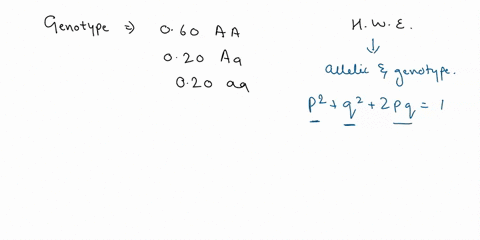 Genotype ⇒ 0.60 AA
0.20 Aa
0.20 aa
H.W.E.
↓
allelic & genotype.
p² + q² + 2pq = 1